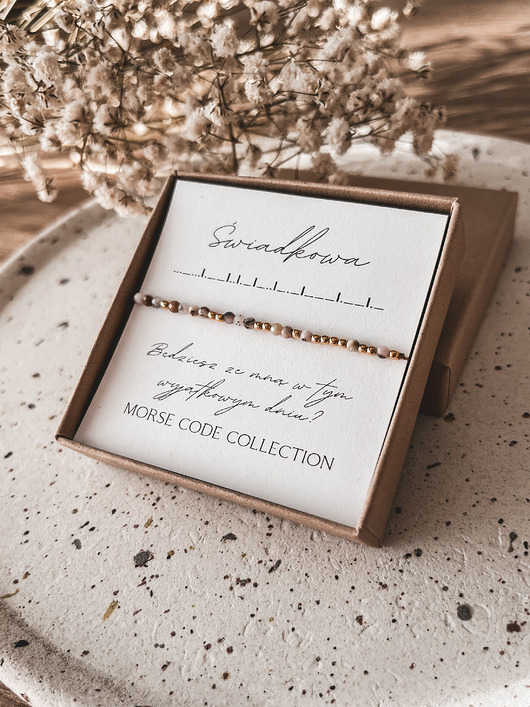 Świadkowa
Będziesz ze mną w tym
wyjątkowym dniu?
MORSE CODE COLLECTION